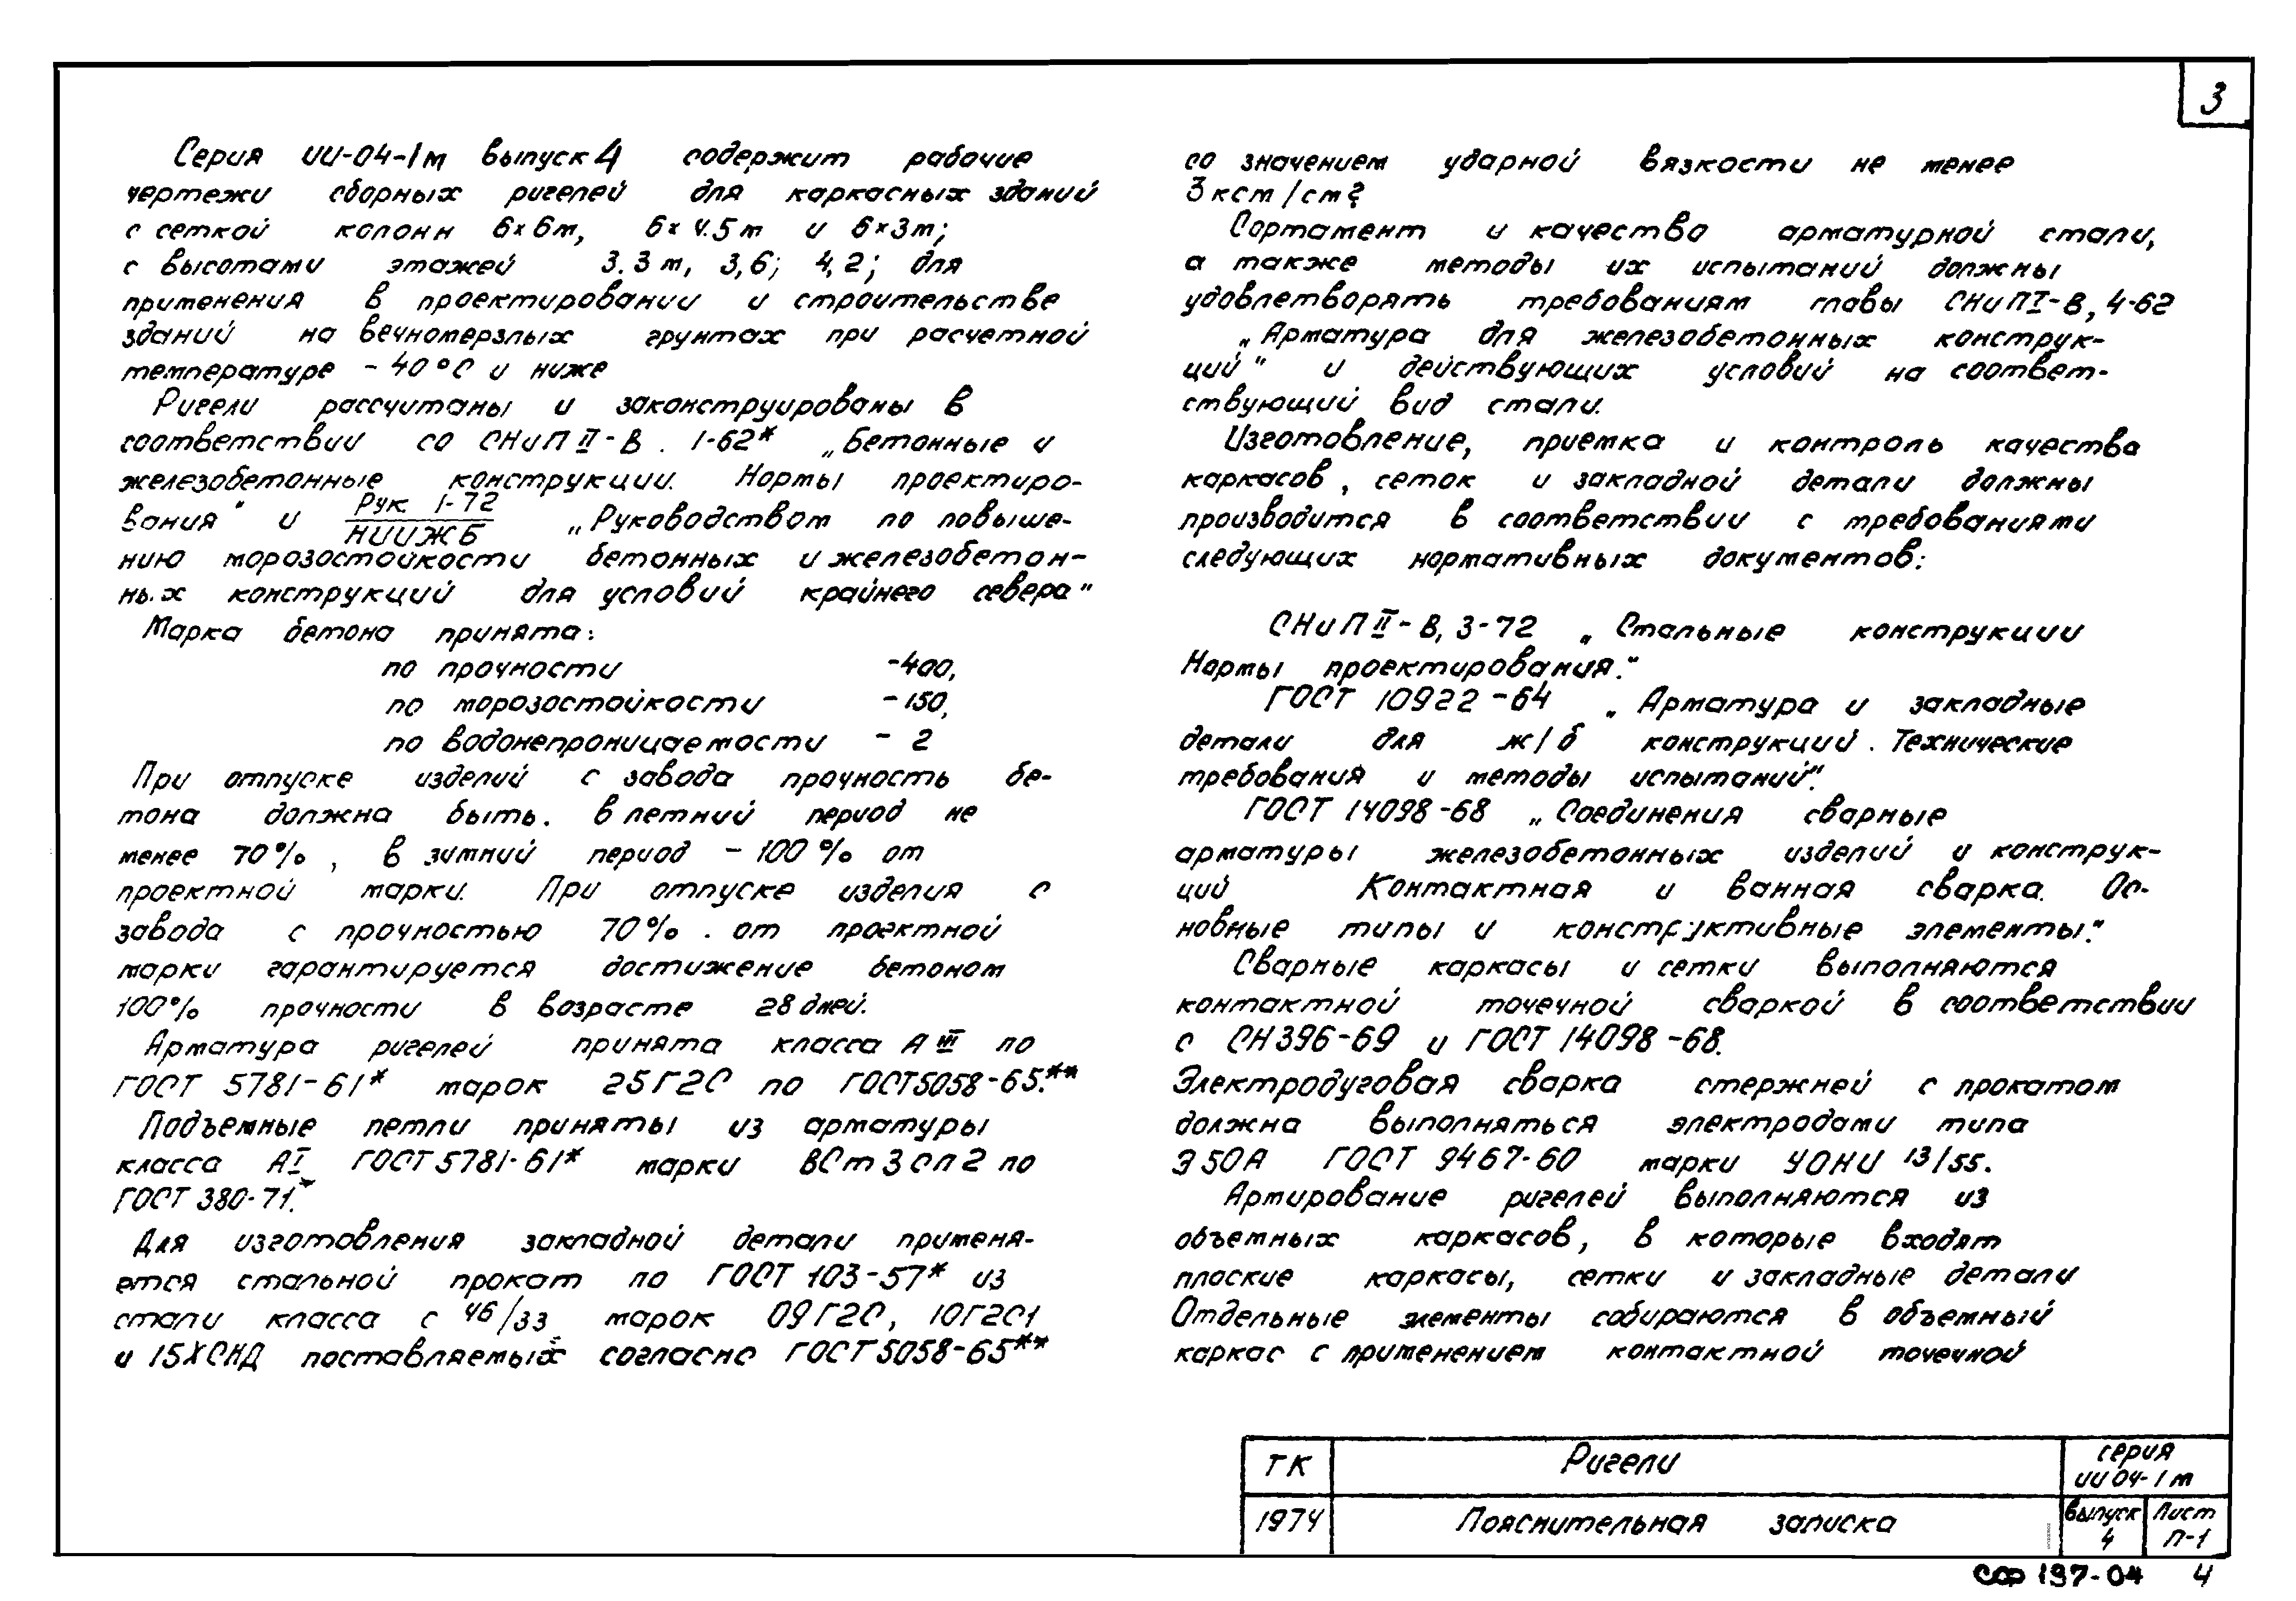 3
Серия ИИ-04-1м выпуск 4 содержит рабочие
чертежи сборных ригелей для каркасных зданий
с сеткой колонн 6×6м, 6×4.5м и 6×3м;
с высотами этажей 3.3м, 3,6; 4,2; для
применения в проектировании и строительстве
зданий на вечномерзлых грунтах при расчетной
температуре -40°С и ниже
Ригели рассчитаны и законструированы в
соответствии со СНиП II-В. 1-62* „Бетонные и
железобетонные конструкции. Нормы проектиро-
вания" и Рук 1-72/НИИЖБ „Руководством по повыше-
нию морозостойкости бетонных и железобетон-
ных конструкций для условий крайнего севера"
Марка бетона принята:
по прочности -400,
по морозостойкости -150,
по водонепроницаемости - 2
При отпуске изделий с завода прочность бе-
тона должна быть. в летний период не
менее 70%, в зимний период - 100% от
проектной марки. При отпуске изделия с
завода с прочностью 70%. от проектной
марки гарантируется достижение бетоном
100% прочности в возрасте 28 дней.
Арматура ригелей принята класса А III по
ГОСТ 5781-61* марок 25Г2С по ГОСТ5058-65.**
Подъемные петли приняты из арматуры
класса АI ГОСТ5781-61* марки ВСт3сп2 по
ГОСТ 380-71.*
Для изготовления закладной детали применя-
ется стальной прокат по ГОСТ 103-57* из
стали класса с 46/33 марок 09Г2С, 10Г2С1
и 15ХСНД поставляемых согласно ГОСТ5058-65**
со значением ударной вязкости не менее
3кгм/см²
Сортамент и качество арматурной стали,
а также методы их испытаний должны
удовлетворять требованиям главы СНиП I-В, 4-62
„Арматура для железобетонных конструк-
ций" и действующих условий на соответ-
ствующий вид стали.
Изготовление, приемка и контроль качества
каркасов, сеток и закладной детали должны
производится в соответствии с требованиями
следующих нормативных документов:
СНиП II-В, 3-72 „Стальные конструкции
Нормы проектирования."
ГОСТ 10922-64 „Арматура и закладные
детали для ж/б конструкций. Технические
требования и методы испытаний".
ГОСТ 14098-68 „Соединения сварные
арматуры железобетонных изделий и конструк-
ций Контактная и ванная сварка. Ос-
новные типы и конструктивные элементы."
Сварные каркасы и сетки выполняются
контактной точечной сваркой в соответствии
с СН396-69 и ГОСТ 14098-68.
Электродуговая сварка стержней с прокатом
должна выполняться электродами типа
Э50А ГОСТ 9467-60 марки УОНИ 13/55.
Армирование ригелей выполняются из
объемных каркасов, в которые входят
плоские каркасы, сетки и закладные детали
Отдельные элементы собираются в объемный
каркас с применением контактной точечной
ТК Ригели серия
ИИ 04-1м
1974 Пояснительная записка выпуск 4 Лист П-1
СФ 137-04 4